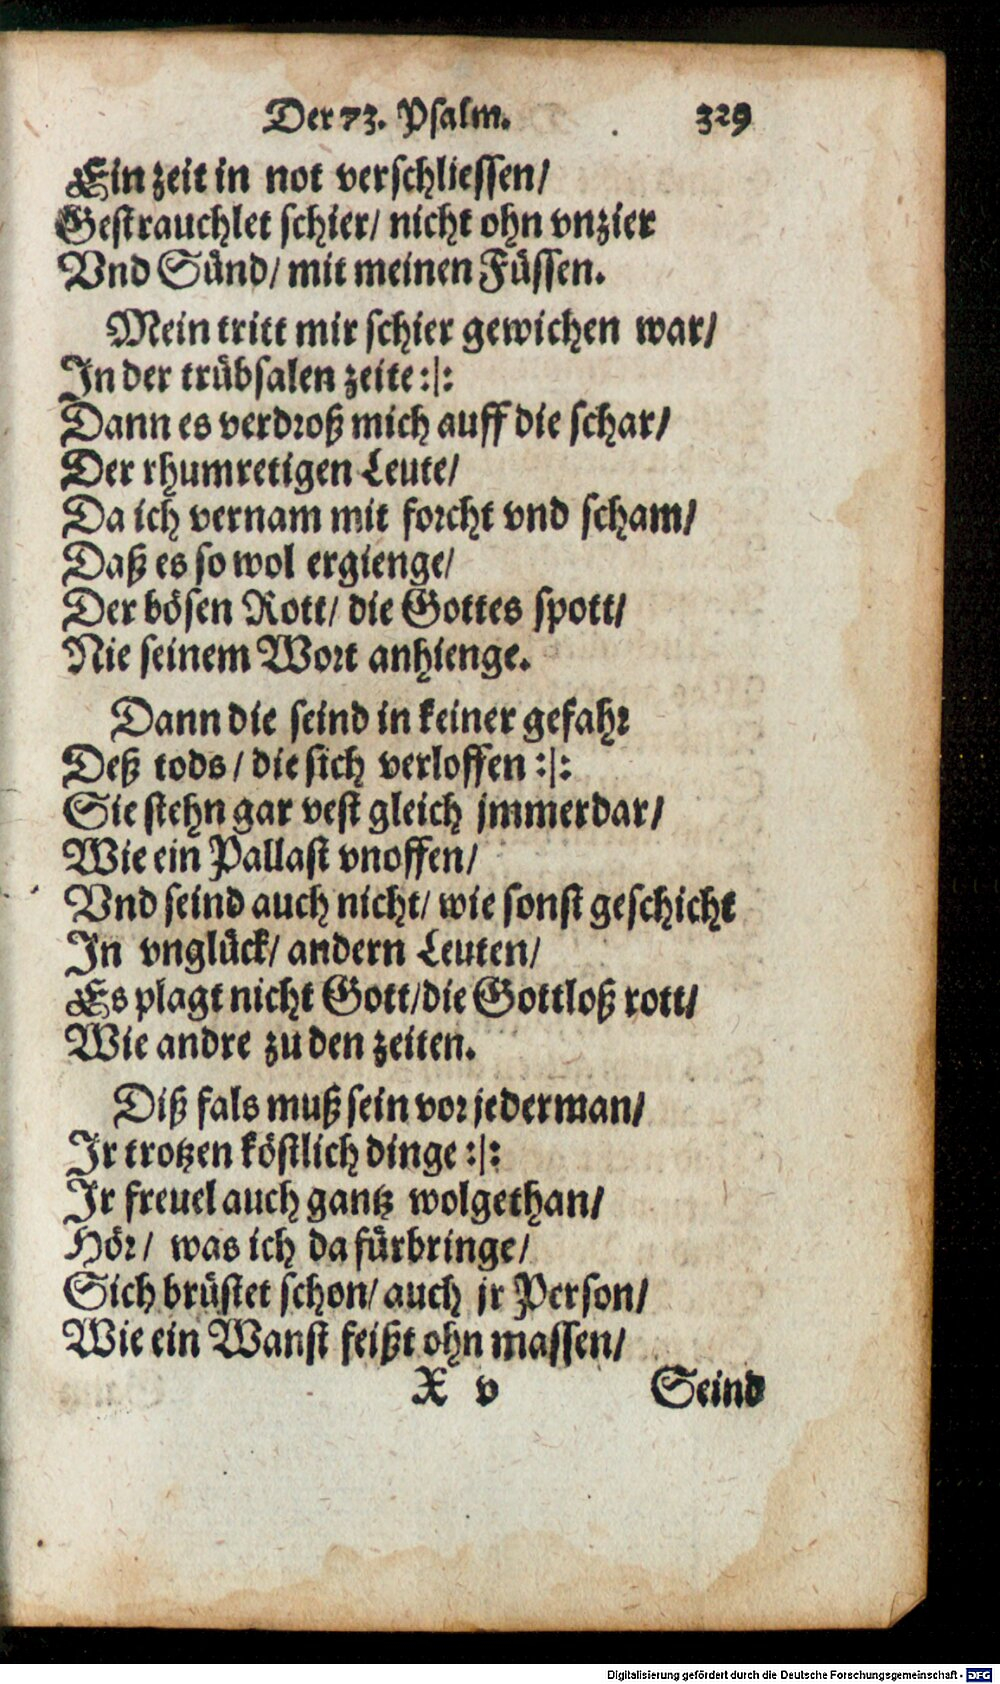 Der 73. Psalm. 329
Ein zeit in not verschliessen/
Gestrauchlet schier/ nicht ohn vnzier
Vnd Sünd/ mit meinen Füssen.
Mein tritt mir schier gewichen war/
In der trübsalen zeite :|:
Dann es verdroß mich auff die schar/
Der rhumretigen Leute/
Da ich vernam mit forcht vnd scham/
Daß es so wol ergienge/
Der bösen Rott/ die Gottes spott/
Nie seinem Wort anhienge.
Dann die seind in keiner gefahr
Deß tods/ die sich verloffen :|:
Sie stehn gar vest gleich jmmerdar/
Wie ein Pallast vnoffen/
Vnd seind auch nicht/ wie sonst geschicht
In vnglück/ andern Leuten/
Es plagt nicht Gott/ die Gottloß rott/
Wie andre zu den zeiten.
Diß fals muß sein vor jederman/
Ir trotzen köstlich dinge :|:
Ir freuel auch gantz wolgethan/
Hör/ was ich da fürbringe/
Sich brüstet schon/ auch jr Person/
Wie ein Wanst feißt ohn massen/
X v Seind
Digitalisierung gefördert durch die Deutsche Forschungsgemeinschaft - DFG